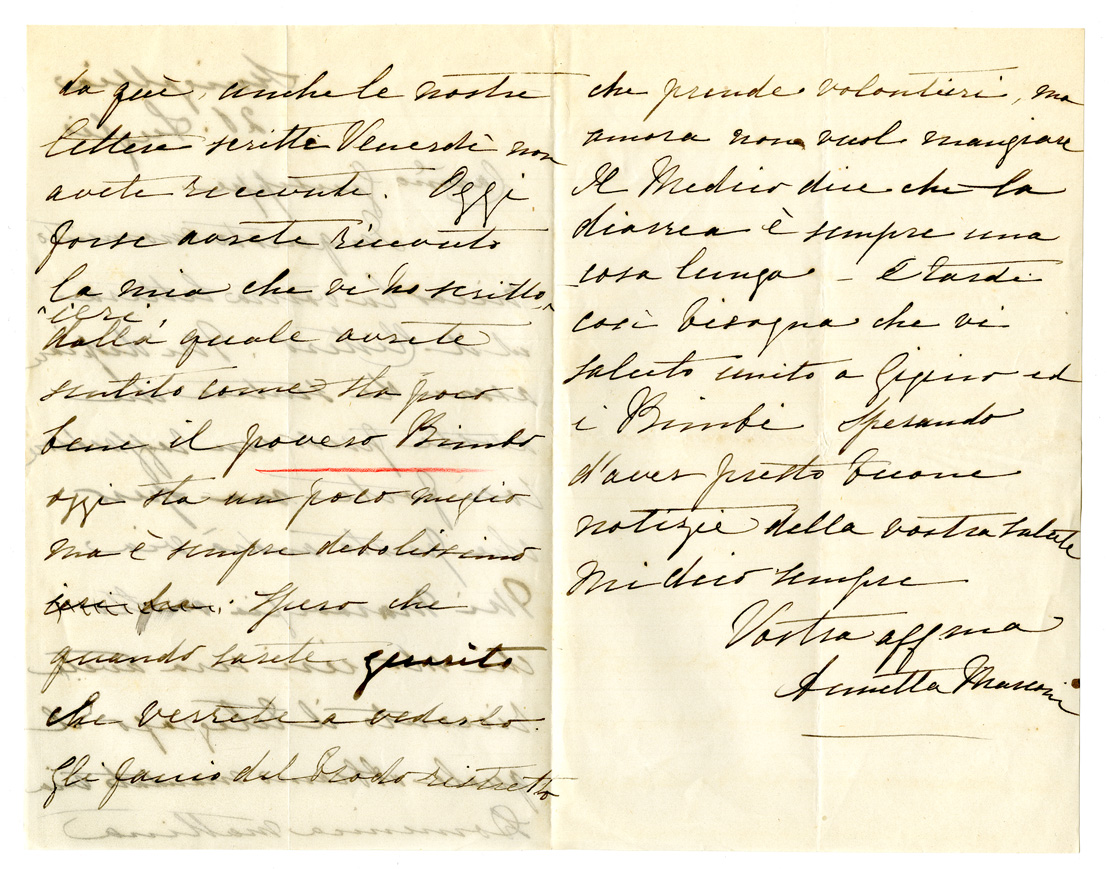 da quì, anche le nostre
lettere scritte Venerdì non
avete ricevute. Oggi
forse avrete ricevuto
la mia che vi ho scritto
ieri,
dalla quale avrete
sentito come sta poco
bene il povero Bimbo
oggi sta un poco meglio
ma è sempre debolissimo
Spero che
quando sarete guarito
che verrete a vederlo.
Gli fanno del brodo ristretto
che prende volontieri, ma
ancora non vuol mangiare
Il Medico dice che la
diarrea è sempre una
cosa lunga - È tardi
così bisogna che vi
saluto unito a Gigino ed
i Bimbi Sperando
d'aver presto buone
notizie della vostra salute
Mi dico sempre
Vostra affma
Annetta Marconi